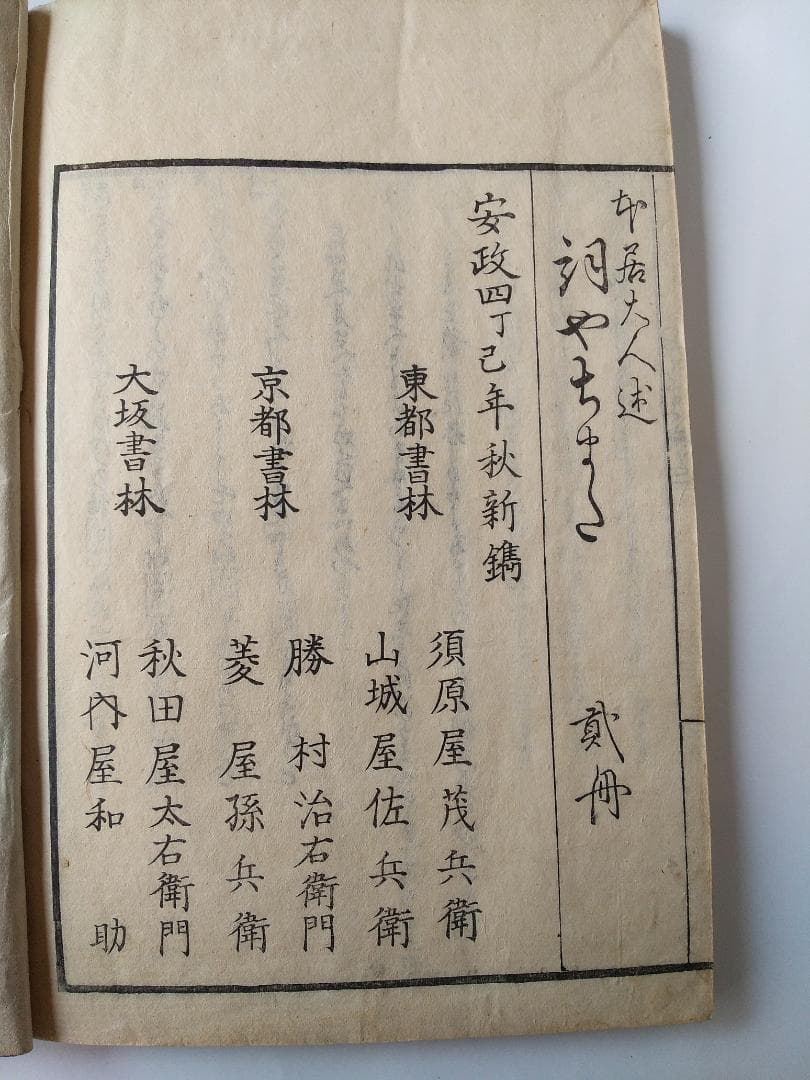 本居大人述
詞やちまた 貳冊
安政四丁巳年秋新鐫
東都書林 須原屋茂兵衛
山城屋佐兵衛
京都書林 勝村治右衛門
菱屋孫兵衛
大坂書林 秋田屋太右衛門
河内屋和助